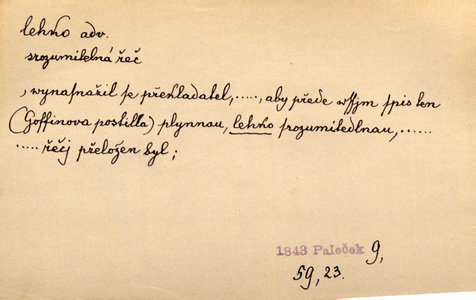 lehko adv.
srozumitelná řeč
, wynasnažil se překladatel,....., aby přede wssjm spis ten
(Goffinova postilla) plynnau, lehko srozumitedlnau,......
..... řečj přeložen byl;
1843 Paleček 9,
59, 23.